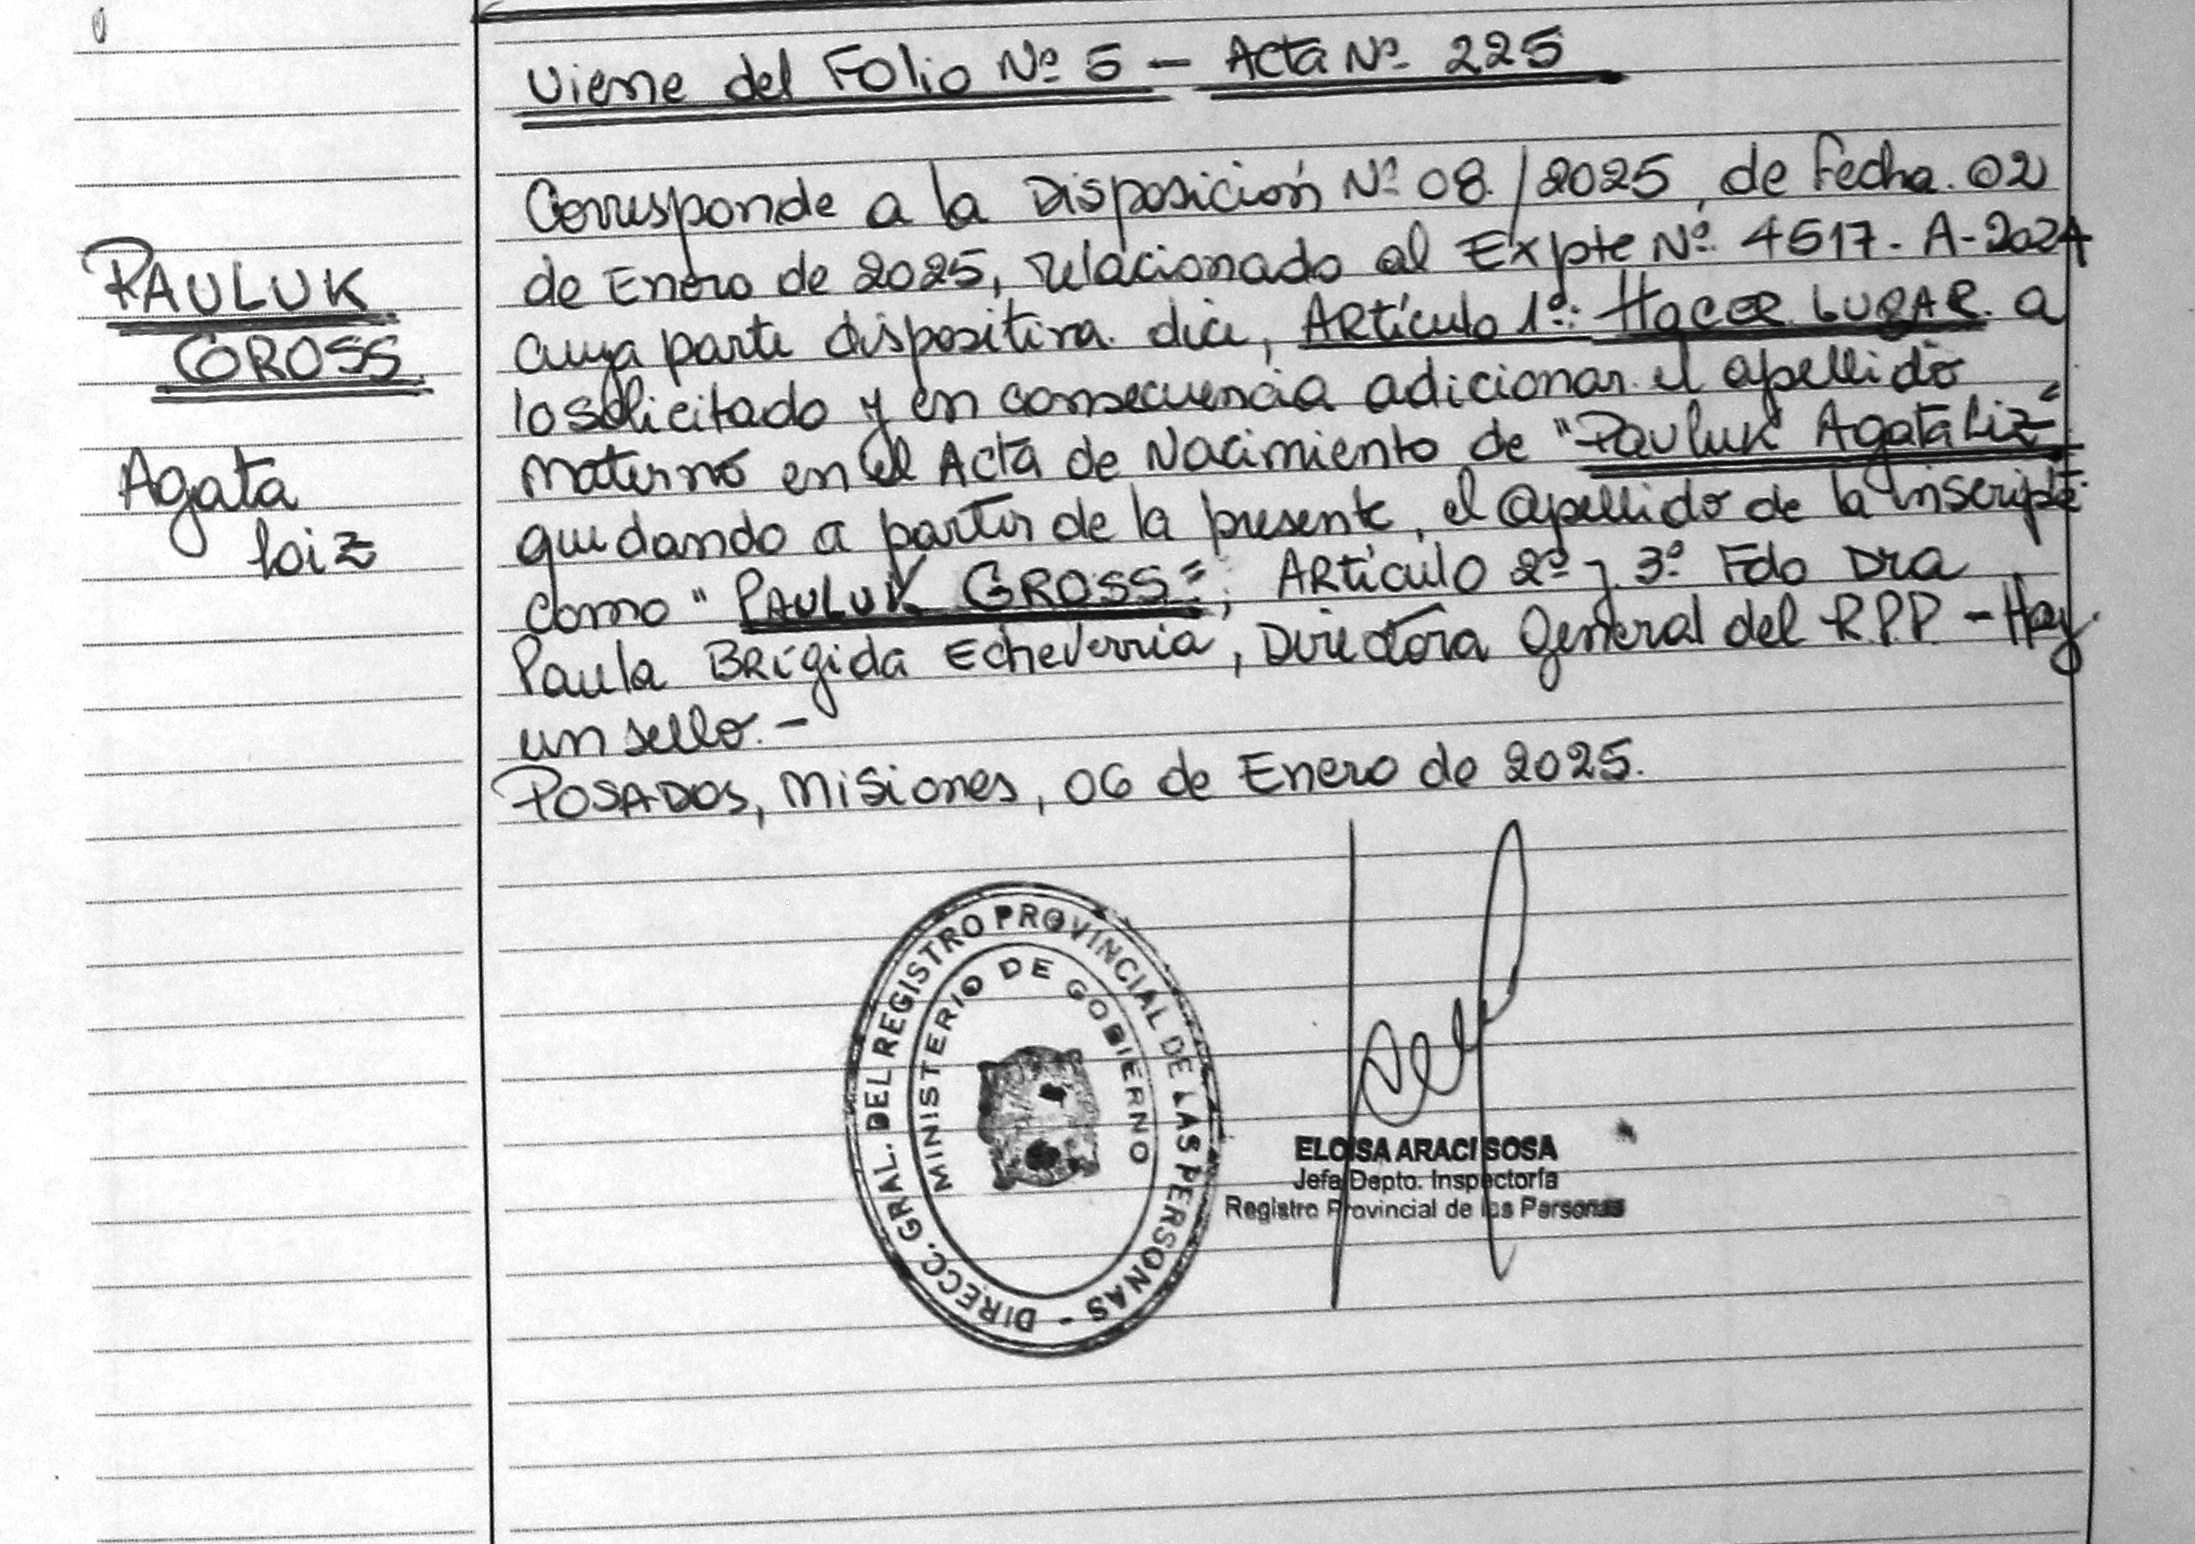 Viene del Folio Nº 5 - Acta Nº 225
Corresponde a la Disposición Nº 08/2025, de fecha 02
de Enero de 2025, relacionado al Expte Nº 4517-A-2024
cuya parte dispositiva dice, Artículo 1º: Hacer LUGAR a
lo solicitado y en consecuencia adicionar el apellido
materno en el Acta de Nacimiento de "Pauluk Agata Liz"
quedando a partir de la presente, el apellido de la inscripta
como "PAULUK GROSS"; Artículo 2º y 3º Fdo Dra
Paula Brígida Echeverria, Directora General del RPP - Hay
un sello.-
POSADAS, Misiones, 06 de Enero de 2025.
PAULUK
GROSS
Agata
Liz
DIRECC. GRAL. DEL REGISTRO PROVINCIAL DE LAS PERSONAS -
MINISTERIO DE GOBIERNO
ELOISA ARACI SOSA
Jefa Depto. Inspectoría
Registro Provincial de las Personas